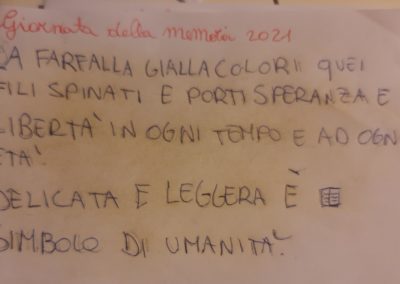 Giornata della memoria 2021
LA FARFALLA GIALLA COLORI QUEI
FILI SPINATI E PORTI SPERANZA E
LIBERTÀ IN OGNI TEMPO E AD OGNI
ETÀ.
DELICATA E LEGGERA È
SIMBOLO DI UMANITÀ.